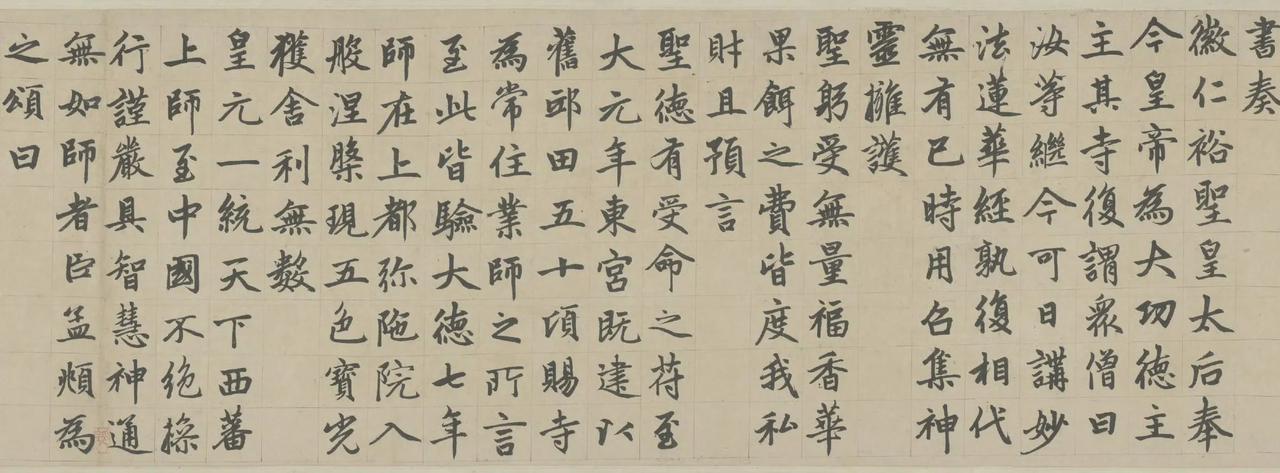 書奏
徽仁裕聖皇太后奉
今皇帝為大功德主
主其寺復謂衆僧曰
汝等繼今可日講妙
法蓮華經孰復相代
無有已時用召集神
靈擁護
聖躬受無量福香華
果餌之費皆度我私
財且預言
聖德有受命之符至
大元年東宮既建以
舊邸田五十頃賜寺
為常住業師之所言
至此皆驗大德七年
師在上都弥陁院入
般涅槃現五色寶光
獲舍利無數
皇元一統天下西蕃
上師至中國不絶操
行謹嚴具智慧神通
無如師者臣孟頫為
之頌曰